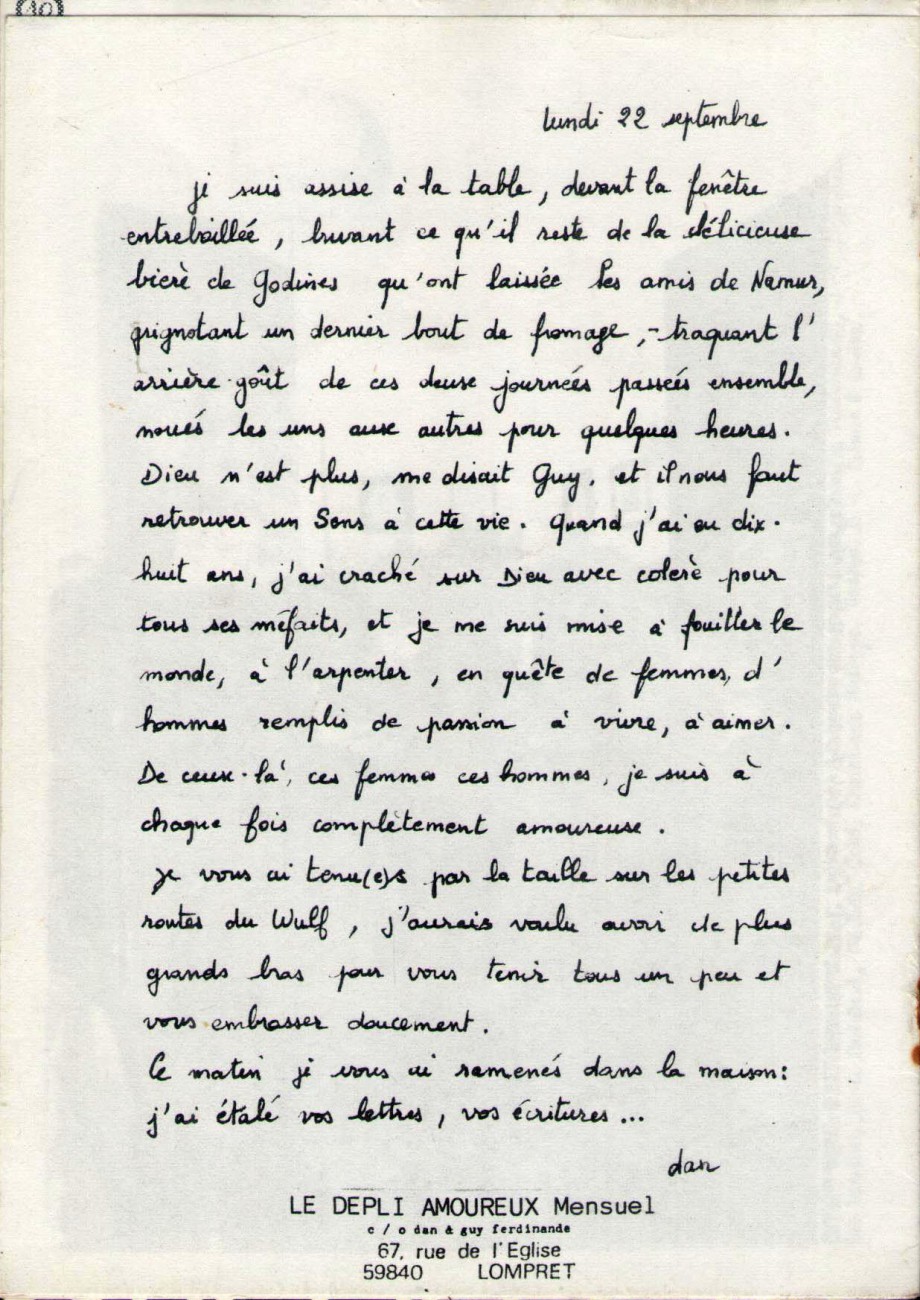 (10)
lundi 22 septembre
je suis assise à la table, devant la fenêtre
entrebaillée, buvant ce qu'il reste de la délicieuse
bière de Godines qu'ont laissée les amis de Namur,
grignotant un dernier bout de fromage, - traquant l'
arrière-goût de ces deux journées passées ensemble,
noués les uns aux autres pour quelques heures.
Dieu n'est plus, me disait Guy, et il nous faut
retrouver un Sens à cette vie. Quand j'ai eu dix-
huit ans, j'ai craché sur Dieu avec colère pour
tous ses méfaits, et je me suis mise à fouiller le
monde, à l'arpenter, en quête de femmes, d'
hommes remplis de passion à vivre, à aimer.
De ceux-là, ces femmes ces hommes, je suis à
chaque fois complètement amoureuse.
je vous ai tenu(e)s par la taille sur les petites
routes du Wulf, j'aurais voulu avoir de plus
grands bras pour vous tenir tous un peu et
vous embrasser doucement.
Ce matin je vous ai ramenés dans la maison:
j'ai étalé vos lettres, vos écritures...
dan
LE DEPLI AMOUREUX Mensuel
c / o dan & guy ferdinande
67, rue de l'Eglise
59840 LOMPRET